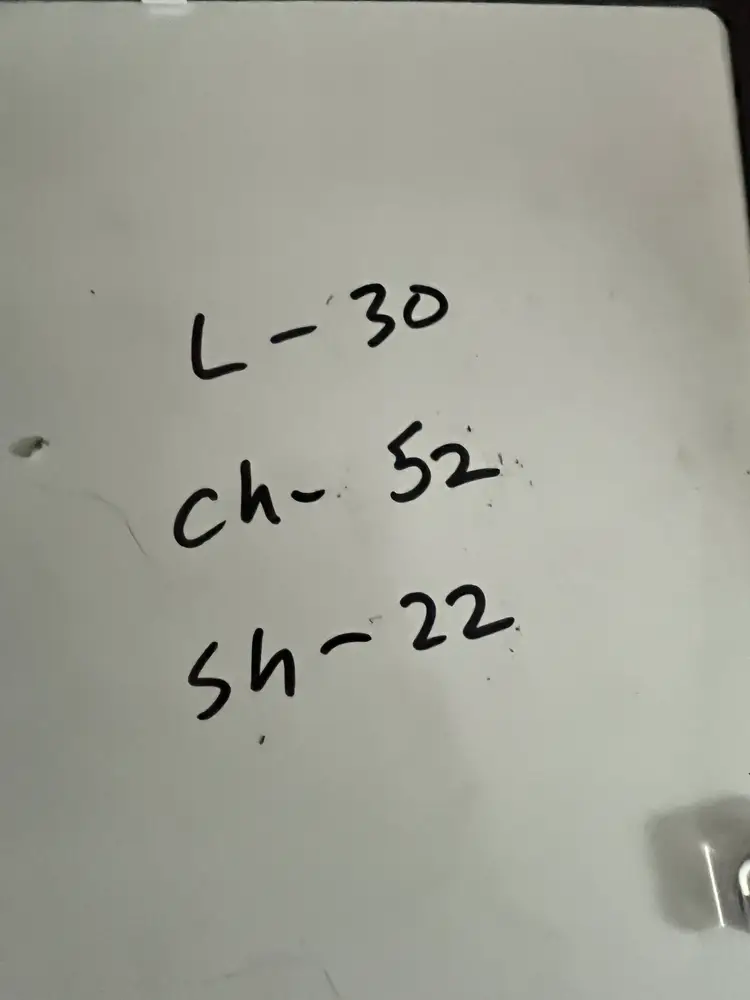 L - 30
Ch - 52
Sh - 22